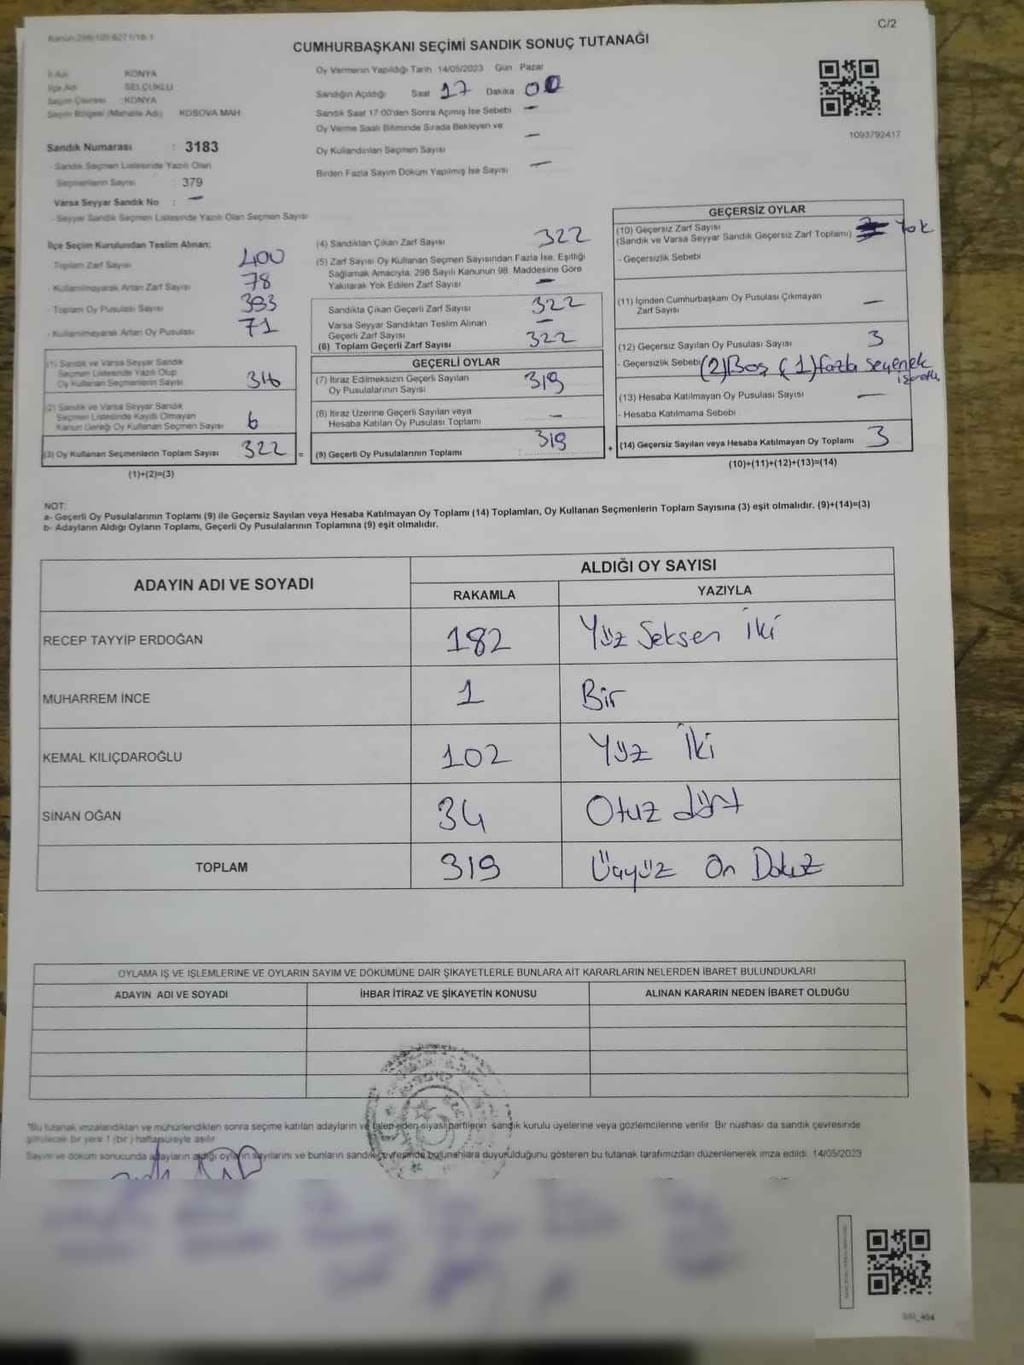 C/2
CUMHURBAŞKANI SEÇİMİ SANDIK SONUÇ TUTANAĞI
İl Adı KONYA
İlçe Adı SELÇUKLU
Seçim Çevresi : KONYA
Seçim Bölgesi (Mahalle Adı) KOSOVA MAH
Sandık Numarası : 3183
- Sandık Seçmen Listesinde Yazılı Olan
Seçmenlerin Sayısı : 379
Varsa Seyyar Sandık No : —
- Seyyar Sandık Seçmen Listesinde Yazılı Olan Seçmen Sayısı
Oy Vermenin Yapıldığı Tarih 14/05/2023 Gün Pazar
Sandığın Açıldığı Saat 17 Dakika 00
Sandık Saat 17:00'den Sonra Açılmış İse Sebebi —
Oy Verme Saati Bitiminde Sırada Bekleyen ve
Oy Kullandırılan Seçmen Sayısı —
Birden Fazla Sayım Döküm Yapılmış İse Sayısı —
1093792417
İlçe Seçim Kurulundan Teslim Alınan;
- Toplam Zarf Sayısı 400
- Kullanılmayarak Artan Zarf Sayısı 78
- Toplam Oy Pusulası Sayısı 393
- Kullanılmayarak Artan Oy Pusulası 71
(1) Sandık ve Varsa Seyyar Sandık
Seçmen Listesinde Yazılı Olup
Oy Kullanan Seçmenlerin Sayısı 316
(2) Sandık ve Varsa Seyyar Sandık
Seçmen Listesinde Kayıtlı Olmayan
Kanun Gereği Oy Kullanan Seçmen Sayısı 6
(3) Oy Kullanan Seçmenlerin Toplam Sayısı 322 =
(1)+(2)=(3)
(4) Sandıktan Çıkan Zarf Sayısı 322
(5) Zarf Sayısı Oy Kullanan Seçmen Sayısından Fazla İse, Eşitliği
Sağlamak Amacıyla, 298 Sayılı Kanunun 98. Maddesine Göre
Yakılarak Yok Edilen Zarf Sayısı —
Sandıkta Çıkan Geçerli Zarf Sayısı 322
Varsa Seyyar Sandıktan Teslim Alınan
Geçerli Zarf Sayısı —
(6) Toplam Geçerli Zarf Sayısı 322
GEÇERLİ OYLAR
(7) İtiraz Edilmeksizin Geçerli Sayılan
Oy Pusulalarının Sayısı 319
(8) İtiraz Üzerine Geçerli Sayılan veya
Hesaba Katılan Oy Pusulası Toplamı —
(9) Geçerli Oy Pusulalarının Toplamı 319 +
GEÇERSİZ OYLAR
(10) Geçersiz Zarf Sayısı
(Sandık ve Varsa Seyyar Sandık Geçersiz Zarf Toplamı) Yok
- Geçersizlik Sebebi
(11) İçinden Cumhurbaşkanı Oy Pusulası Çıkmayan
Zarf Sayısı —
(12) Geçersiz Sayılan Oy Pusulası Sayısı 3
- Geçersizlik Sebebi (2) Boş (1) fazla seçenek
işaretli
(13) Hesaba Katılmayan Oy Pusulası Sayısı —
- Hesaba Katılmama Sebebi
(14) Geçersiz Sayılan veya Hesaba Katılmayan Oy Toplamı 3
(10)+(11)+(12)+(13)=(14)
NOT:
a- Geçerli Oy Pusulalarının Toplamı (9) ile Geçersiz Sayılan veya Hesaba Katılmayan Oy Toplamı (14) Toplamları, Oy Kullanan Seçmenlerin Toplam Sayısına (3) eşit olmalıdır. (9)+(14)=(3)
b- Adayların Aldığı Oyların Toplamı, Geçerli Oy Pusulalarının Toplamına (9) eşit olmalıdır.
ADAYIN ADI VE SOYADI ALDIĞI OY SAYISI
RAKAMLA YAZIYLA
RECEP TAYYİP ERDOĞAN 182 Yüz Seksen İki
MUHARREM İNCE 1 Bir
KEMAL KILIÇDAROĞLU 102 Yüz İki
SİNAN OĞAN 34 Otuz dört
TOPLAM 319 Üçyüz On Dokuz
OYLAMA İŞ VE İŞLEMLERİNE VE OYLARIN SAYIM VE DÖKÜMÜNE DAİR ŞİKAYETLERLE BUNLARA AİT KARARLARIN NELERDEN İBARET BULUNDUKLARI
ADAYIN ADI VE SOYADI İHBAR İTİRAZ VE ŞİKAYETİN KONUSU ALINAN KARARIN NEDEN İBARET OLDUĞU
*Bu tutanak imzalandıktan ve mühürlendikten sonra seçime katılan adayların ve talep eden siyasi partilerin sandık kurulu üyelerine veya gözlemcilerine verilir. Bir nüshası da sandık çevresinde
görülecek bir yere 1 (bir) hafta süreyle asılır.
Sayım ve döküm sonucunda adayların aldığı oyların sayılarını ve bunların sandık çevresinde bulunanlara duyurulduğunu gösteren bu tutanak tarafımızdan düzenlenerek imza edildi. 14/05/2023